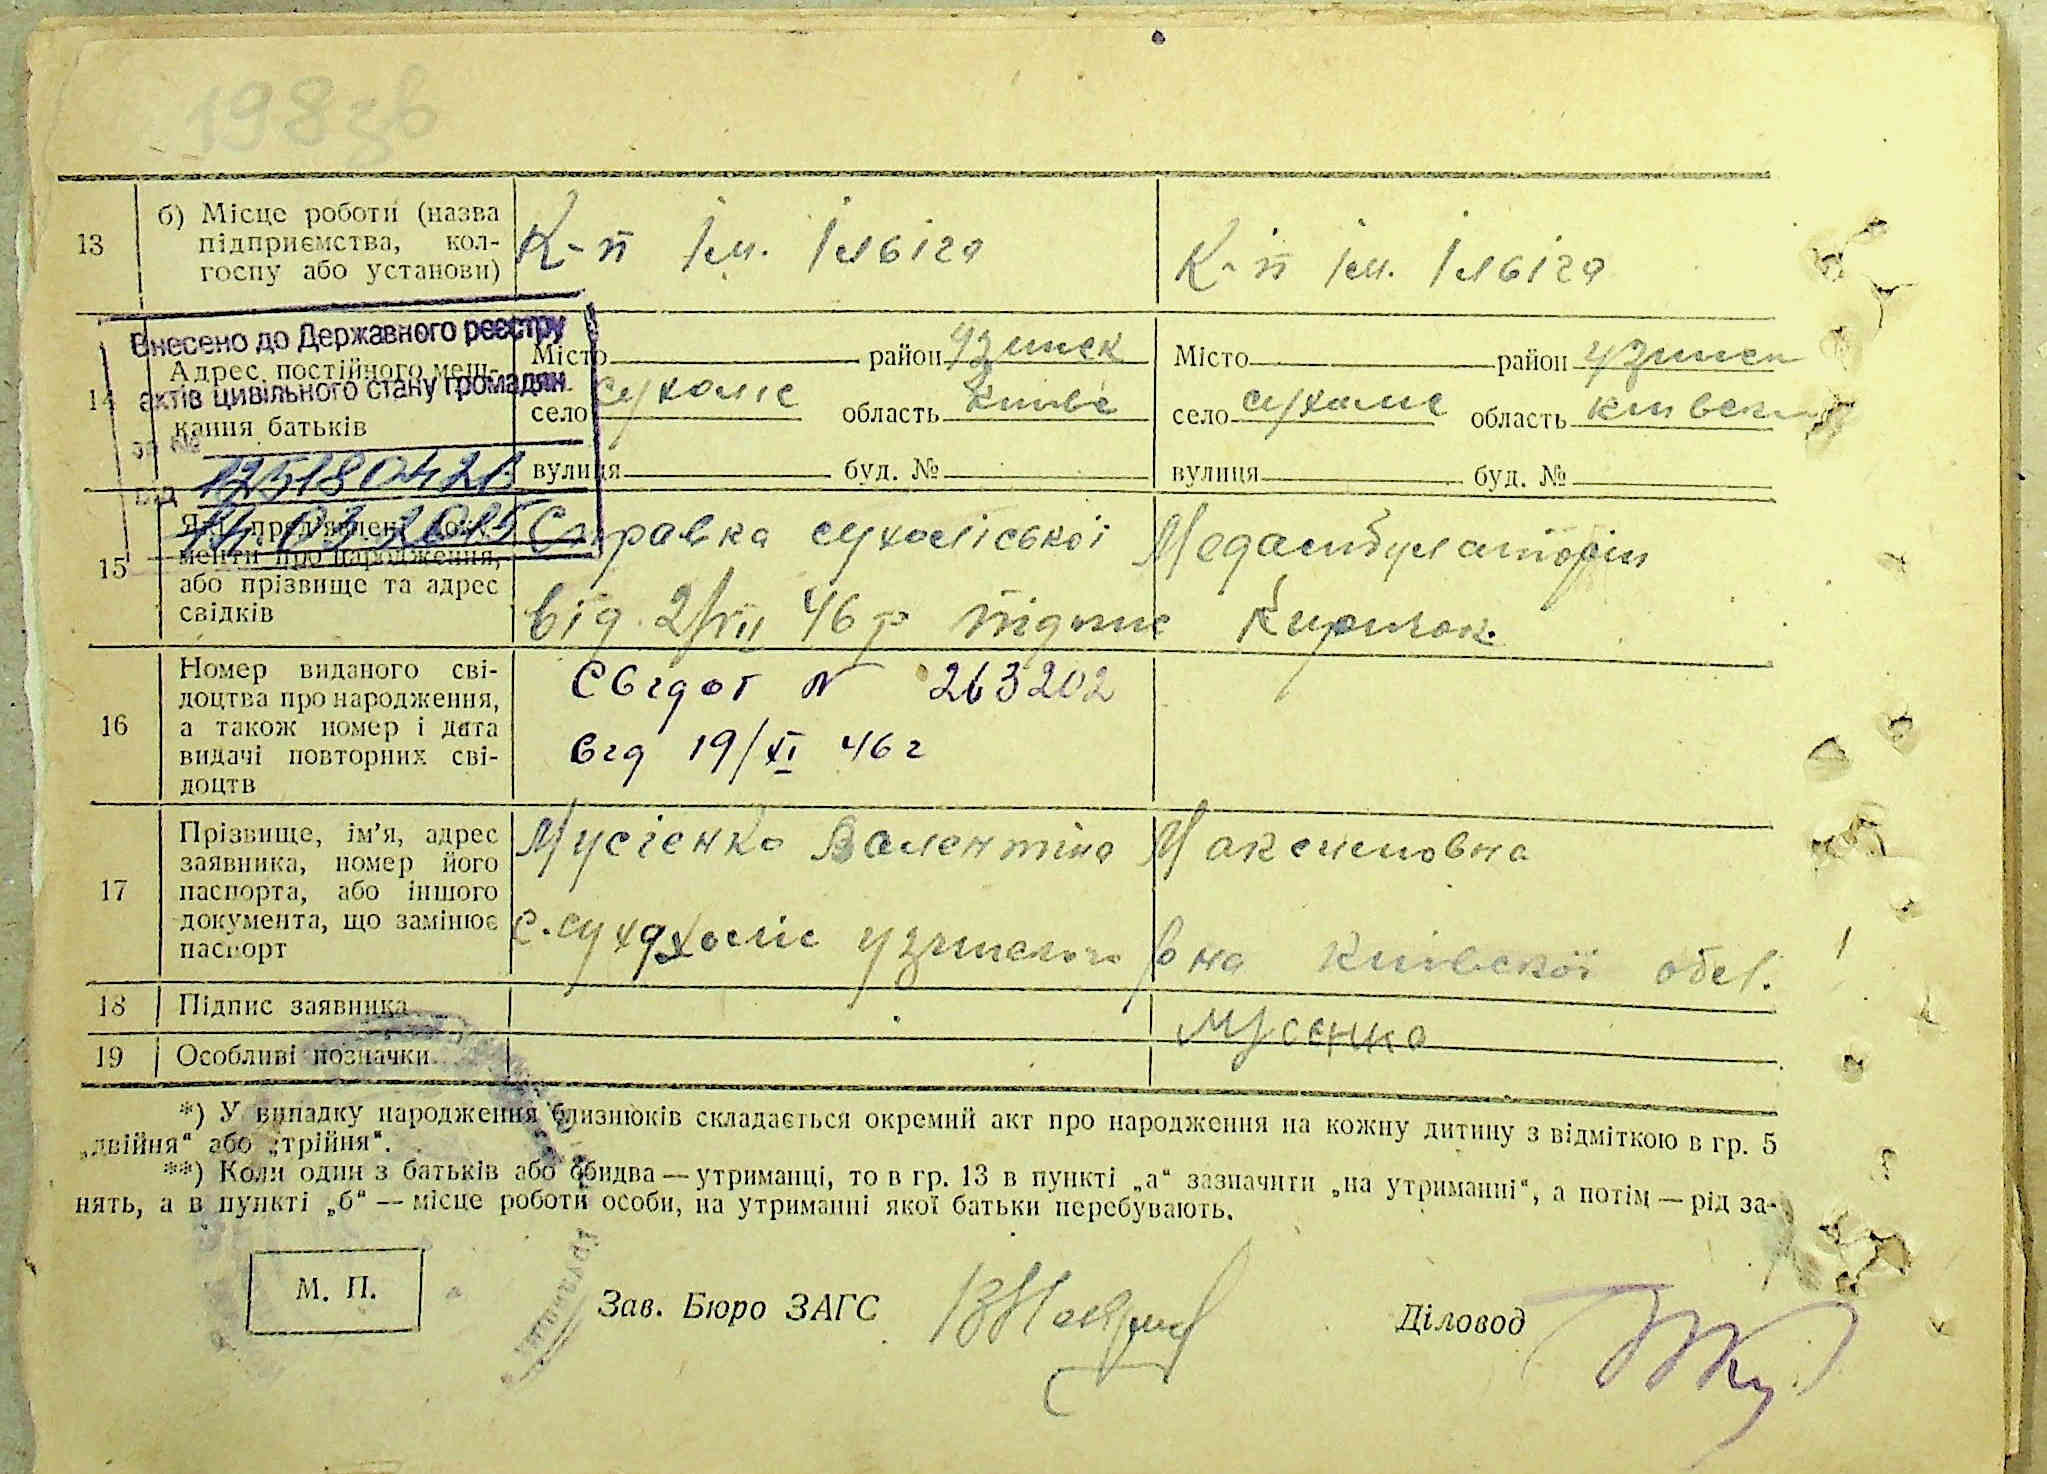 198зв
13
б) Місце роботи (назва
підприємства, кол-
госпу або установи)
К-п ім. Ілліча
К-п ім. Ілліча
Внесено до Державного реєстру
актів цивільного стану громадян
за №
від
14
Адрес постійного меш-
кання батьків
Місто район Узинск
село Сухоліс область Київс
вулиця буд. №
Місто район Узинск
село Сухоліс область Київськ
вулиця буд. №
15
Які пред'явлені доку-
менти про народження,
або прізвище та адрес
свідків
Справка сухоліської Медамбулаторіи
від 2/VII 46 р підпис
16
Номер виданого сві-
доцтва про народження,
а також номер і дата
видачі повторних сві-
доцтв
Свідот № 263202
від 19/XI 46 г
17
Прізвище, ім'я, адрес
заявника, номер його
паспорта, або іншого
документа, що замінює
паспорт
Мусієнко Валентіна Максимовна
с. Узинского р-на Київскої обл.
18
Підпис заявника
Мусєнко
19
Особливі позначки
*) У випадку народження близнюків складається окремий акт про народження на кожну дитину з відміткою в гр. 5
„двійня“ або „трійня“.
**) Коли один з батьків або обидва — утриманці, то в гр. 13 в пункті „а“ зазначити „на утриманні“, а потім — рід за-
нять, а в пункті „б“ — місце роботи особи, на утриманні якої батьки перебувають.
М. П.
Зав. Бюро ЗАГС
Діловод